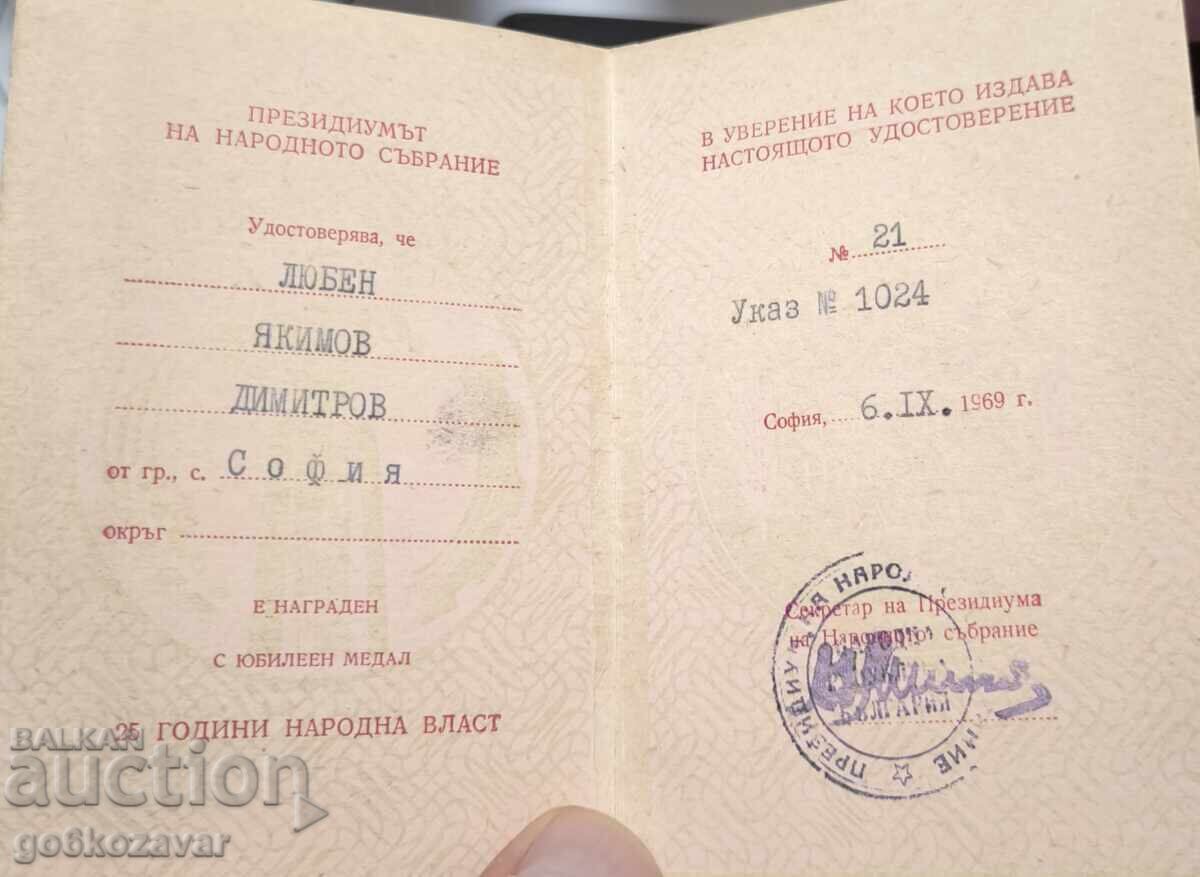 ПРЕЗИДИУМЪТ
НА НАРОДНОТО СЪБРАНИЕ
Удостоверява, че
ЛЮБЕН
ЯКИМОВ
ДИМИТРОВ
от гр., с. София
окръг
Е НАГРАДЕН
С ЮБИЛЕЕН МЕДАЛ
25 ГОДИНИ НАРОДНА ВЛАСТ
В УВЕРЕНИЕ НА КОЕТО ИЗДАВА
НАСТОЯЩОТО УДОСТОВЕРЕНИЕ
№ 21
Указ № 1024
София, 6.IX. 1969 г.
Секретар на Президиума
на Народното събрание
ПРЕЗИДИУМ НА НАРОД
БЪЛГАРИЯ
BALKAN
auction
go6kozavar